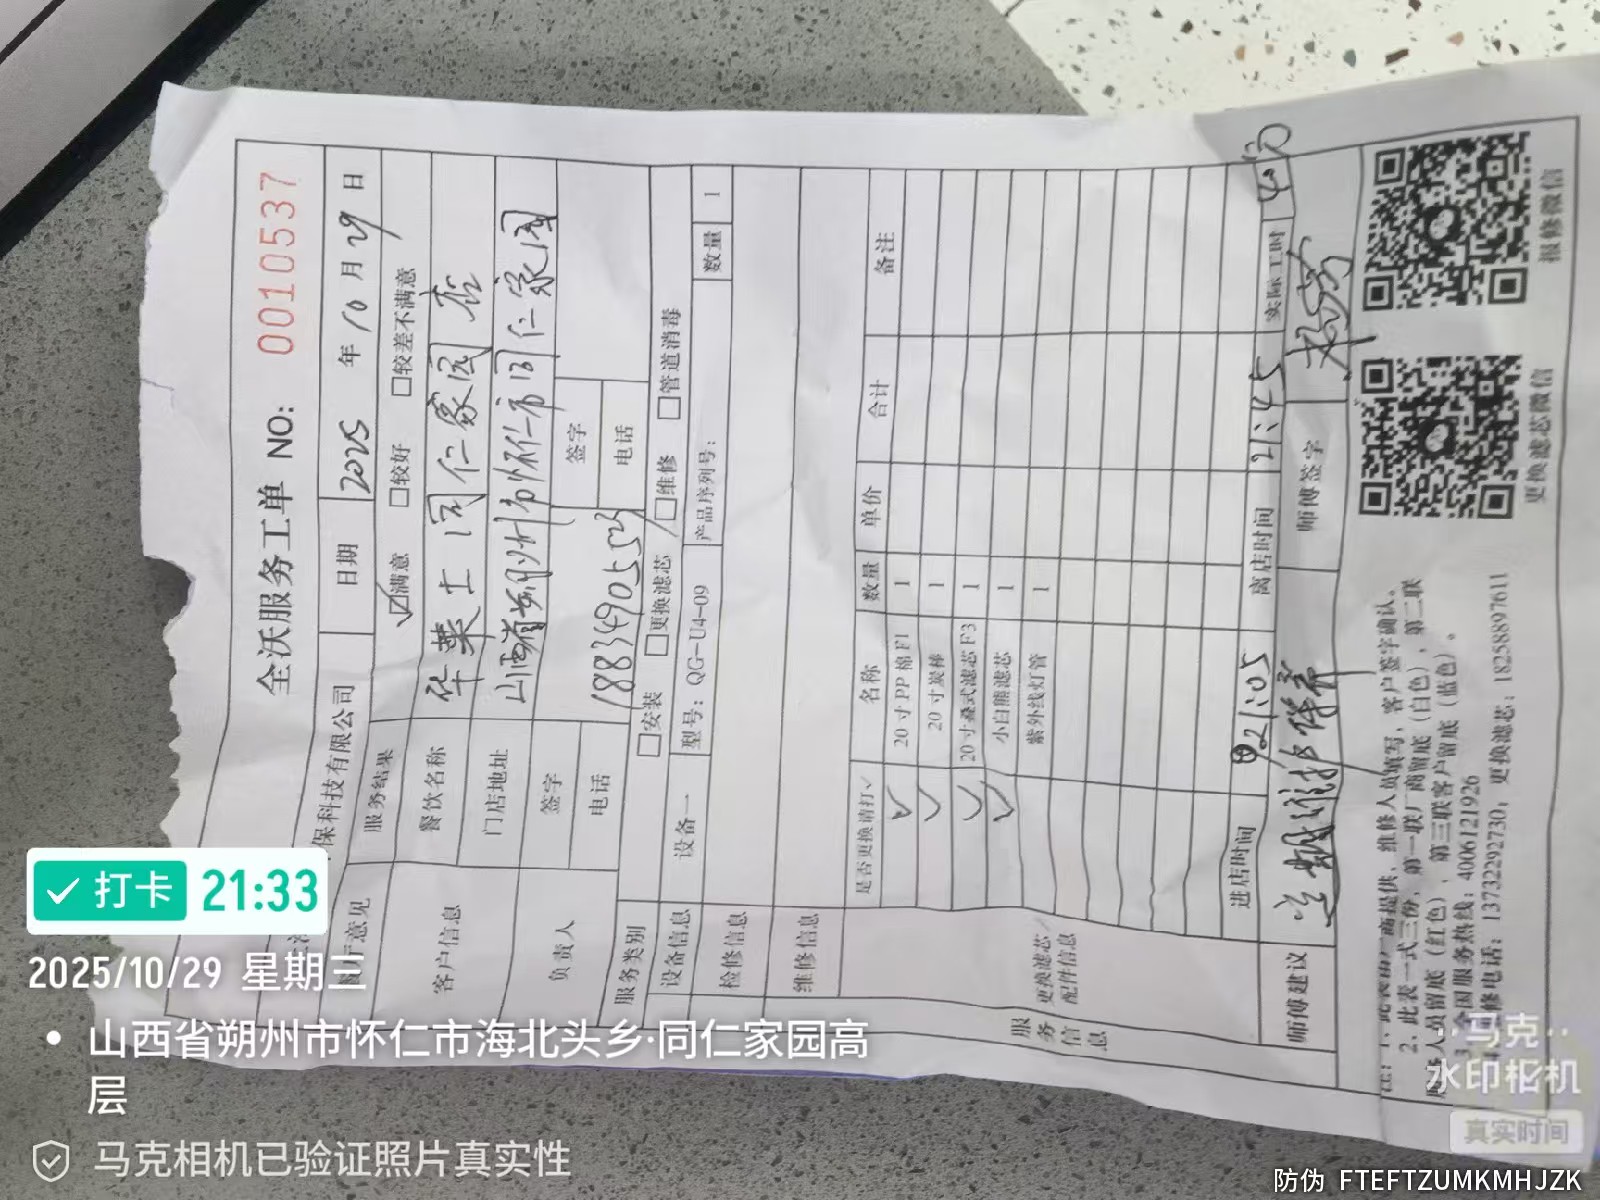 全沃服务工单 NO: 0010537
保科技有限公司 日期 2025 年 10 月 29 日
意见 服务结果 ☑满意 □较好 □较差不满意
客户信息 餐饮名称 华莱士同仁家园店
门店地址 山西省朔州市怀仁市同仁家园
负责人 签字 签字
电话 18834905523 电话
服务类别 □安装 □更换滤芯 □维修 □管道消毒
设备信息 设备一 型号: QG-U4-09 产品序列号: 数量 1
检修信息
维修信息
服务信息
更换滤芯/配件信息
是否更换请打√ 名称 数量 单价 合计 备注
√ 20寸PP棉F1 1
√ 20寸炭棒 1
√ 20寸叠式滤芯F3 1
√ 小白熊滤芯 1
紫外线灯管 1
进店时间 21:05 离店时间 21:45 实际工时 40
师傅建议 师傅签字
商提供,维修人员填写,客户签字确认。
2、此表一式三份,第一联厂商留底(白色),第二联
人员留底(红色),第三联客户留底(蓝色)。
3、全国服务热线:4006121926
修电话:13732292730; 更换滤芯:18258897611
更换滤芯微信
报修微信
打卡 21:33
2025/10/29 星期三
山西省朔州市怀仁市海北头乡·同仁家园高
层
马克相机已验证照片真实性
马克
水印相机
真实时间
防伪 FTEFTZUMKMHJZK